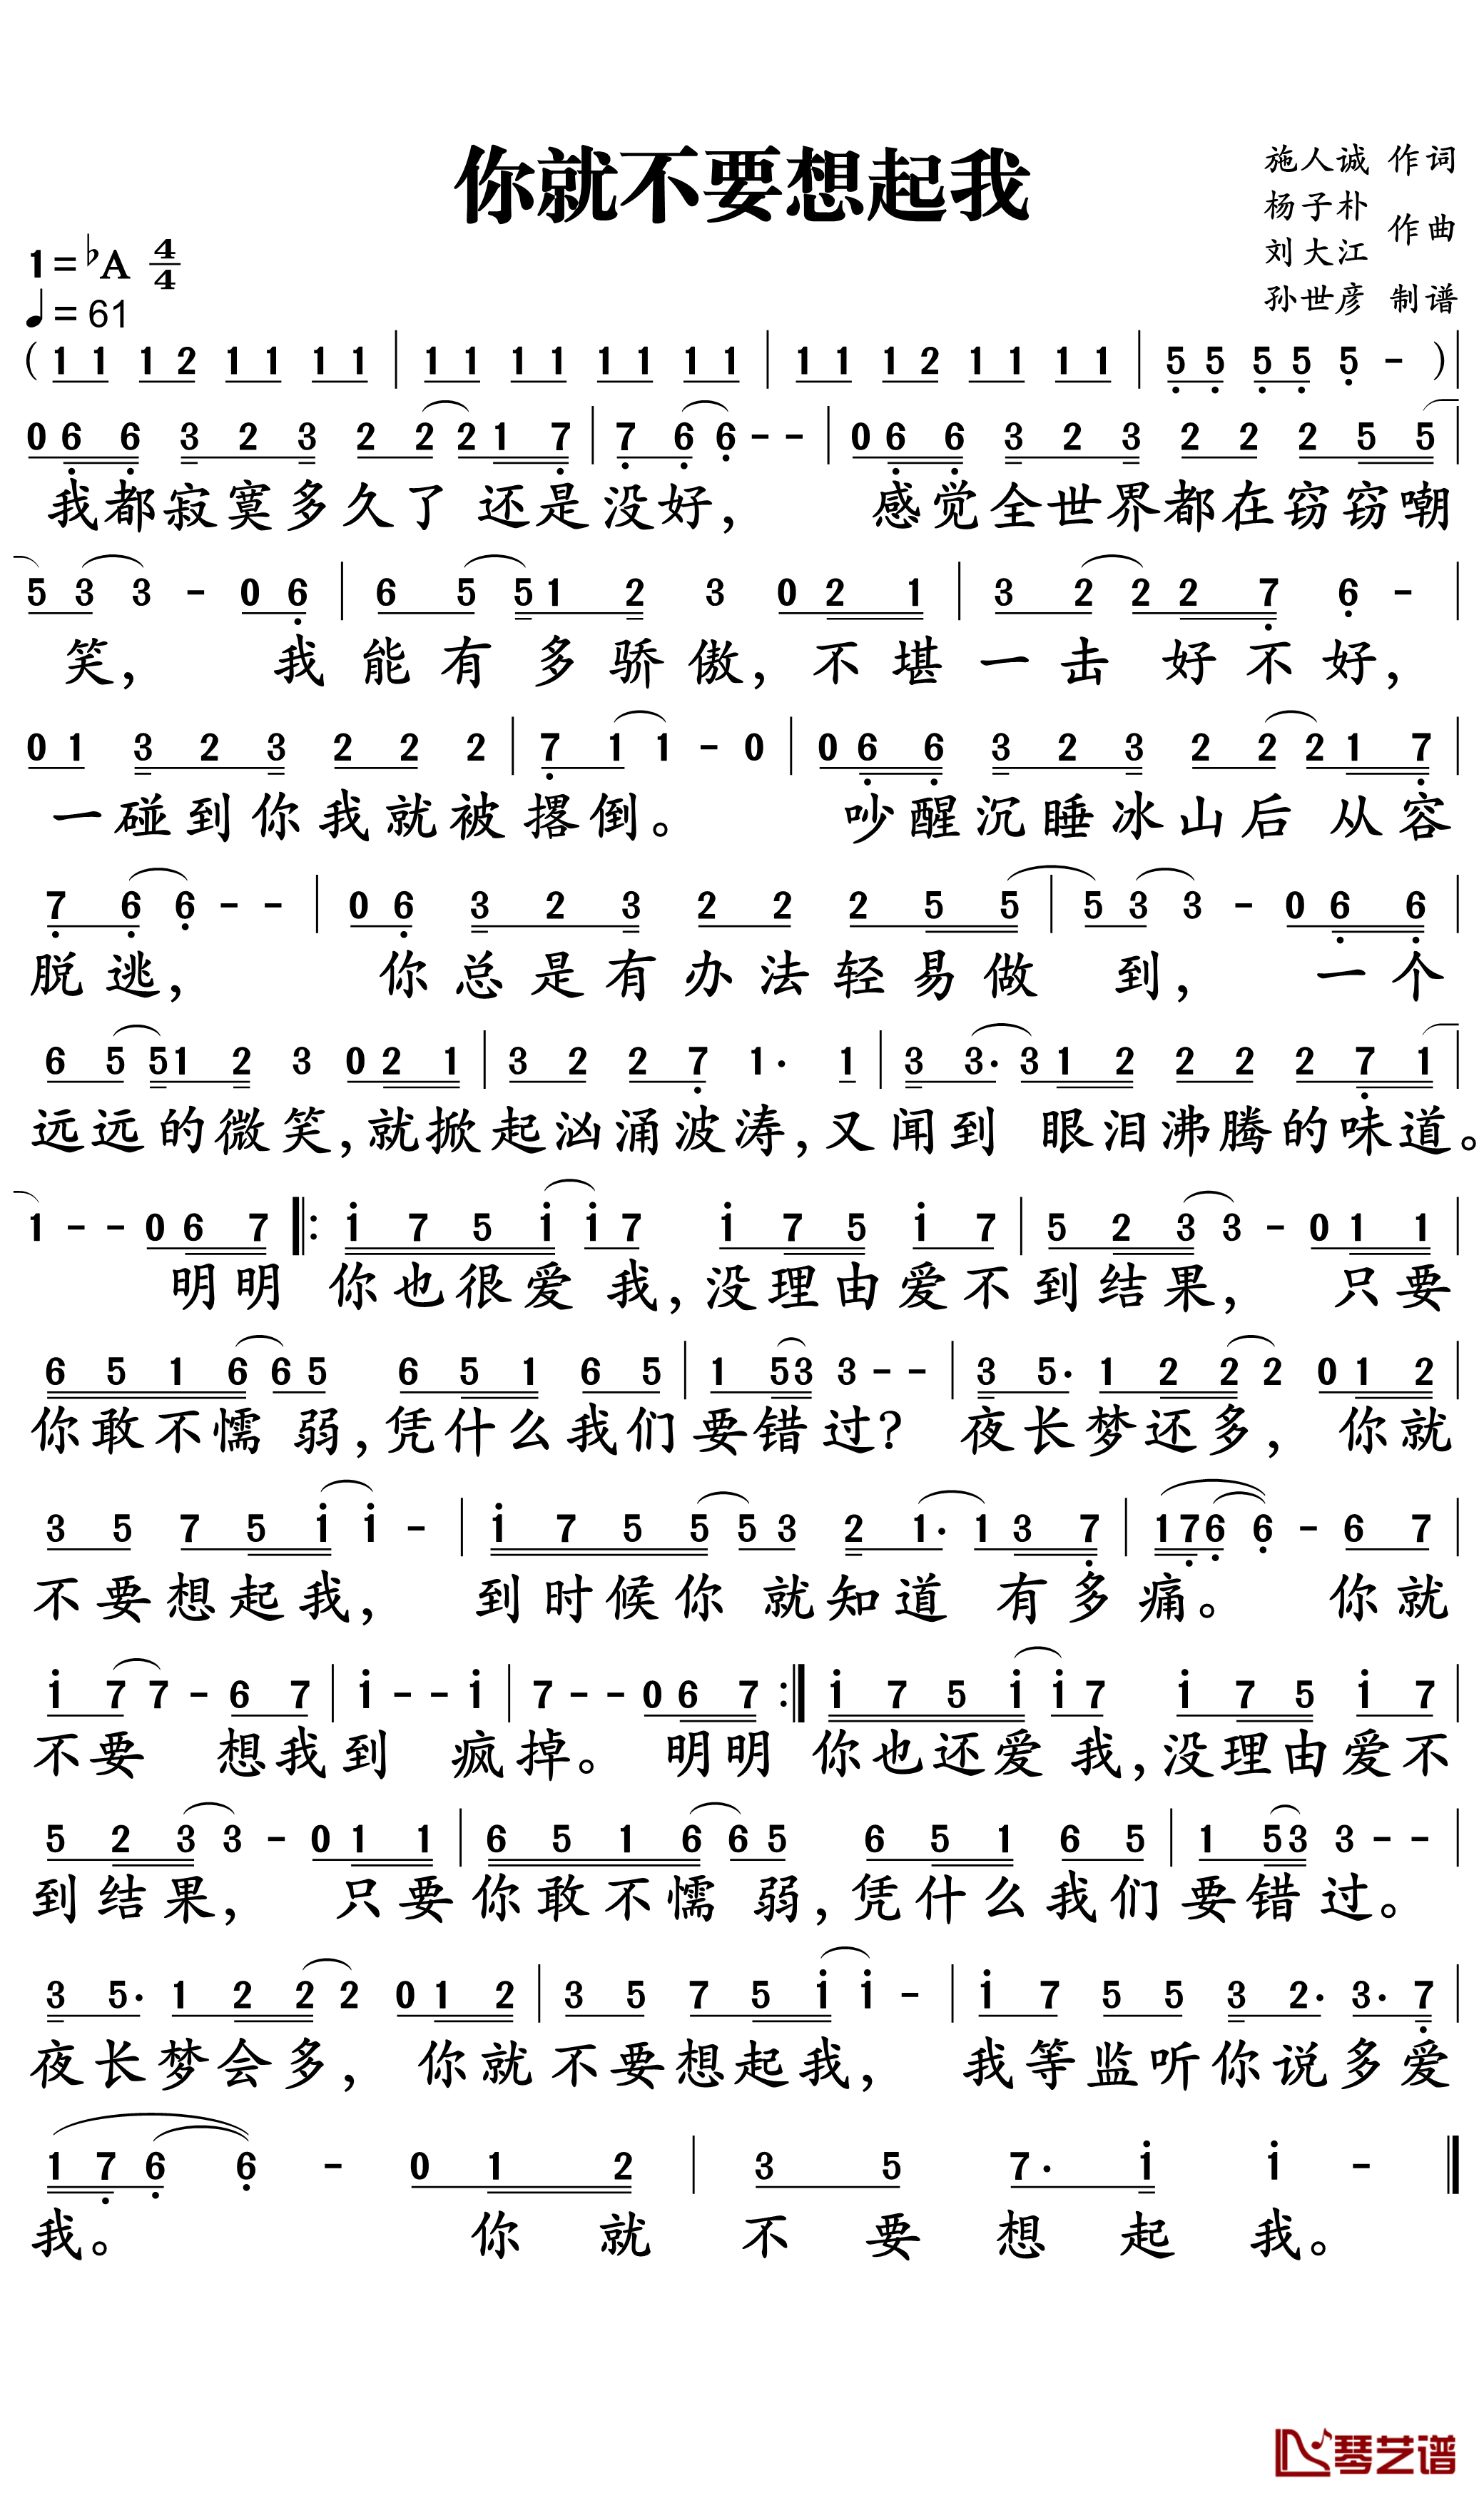 你就不要想起我
施人诚 作词
杨子朴
作曲
刘大江
孙世彦 制谱
1=♭A 4/4
♩=61
( 1 1 1 2 1 1 1 1 | 1 1 1 1 1 1 1 1 | 1 1 1 2 1 1 1 1 | 5̣ 5̣ 5̣ 5̣ 5̣ - ) |
0 6̣ 6̣ 3 2 3 2 2 2 1 7̣ | 7̣ 6̣ 6̣ - - | 0 6̣ 6̣ 3 2 3 2 2 2 5 5 |
我都寂寞多久了还是没好, 感觉全世界都在窃窃嘲
5 3 3 - 0 6̣ | 6 5 5 1 2 3 0 2 1 | 3 2 2 2 7̣ 6̣ - |
笑, 我能有多骄傲,不堪一击好不好,
0 1 3 2 3 2 2 2 | 7̣ 1 1 - 0 | 0 6̣ 6̣ 3 2 3 2 2 2 1 7̣ |
一碰到你我就被撂倒。 吵醒沉睡冰山后从容
7̣ 6̣ 6̣ - - | 0 6̣ 3 2 3 2 2 2 5 5 | 5 3 3 - 0 6̣ 6̣ |
脱逃, 你总是有办法轻易做到, 一个
6 5 5 1 2 3 0 2 1 | 3 2 2 7̣ 1· 1 | 3 3· 3 1 2 2 2 2 7̣ 1 |
远远的微笑,就掀起汹涌波涛,又闻到 眼泪沸腾的味道。
1 - - 0 6 7 ‖: 1̇ 7 5 1̇ 1̇ 7 1̇ 7 5 1̇ 7 | 5 2 3 3 - 0 1 1 |
明明 你也很爱我,没理由爱不到结果, 只要
6 5 1 6 6 5 6 5 1 6 5 | 1 5 3 3 - - | 3 5· 1 2 2 2 0 1 2 |
你敢不懦弱,凭什么我们要错过? 夜长梦还多, 你就
3 5 7 5 1̇ 1̇ - | 1̇ 7 5 5 5 3 2 1· 1 3 7̣ | 1 7̣ 6̣ 6̣ - 6 7 |
不要想起我, 到时候你就知道有多痛。 你就
1̇ 7 7 - 6 7 | 1̇ - - 1̇ | 7 - - 0 6 7 :‖ 1̇ 7 5 1̇ 1̇ 7 1̇ 7 5 1̇ 7 |
不要 想我到 疯掉。 明明 你也还爱我,没理由爱不
5 2 3 3 - 0 1 1 | 6 5 1 6 6 5 6 5 1 6 5 | 1 5 3 3 - - |
到结果, 只要你敢不懦弱,凭什么我们要错过。
3 5· 1 2 2 2 0 1 2 | 3 5 7 5 1̇ 1̇ - | 1̇ 7 5 5 3 2· 3· 7̣ |
夜长梦会多, 你就不要想起我, 我等监听你说多爱
1 7̣ 6̣ 6̣ - 0 1 2 | 3 5 7· 1̇ 1̇ - ‖
我。 你就不要想起我。
琴艺谱